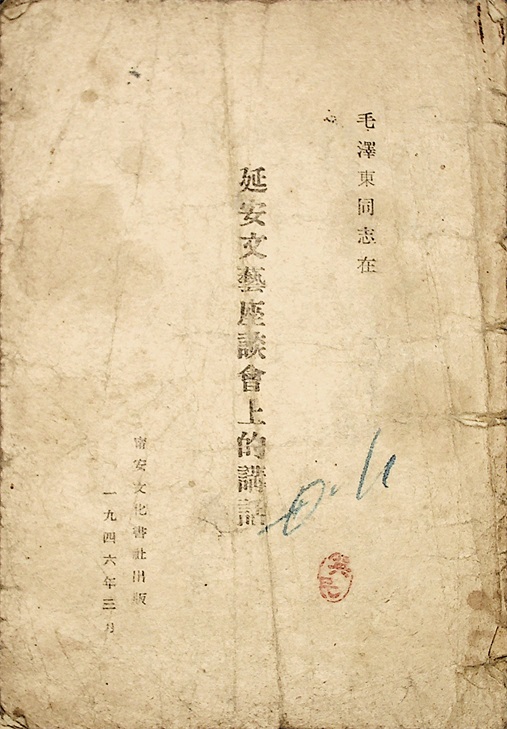 毛澤東同志在
延安文藝座談會上的講話
安文化書社出版
一九四六年三月